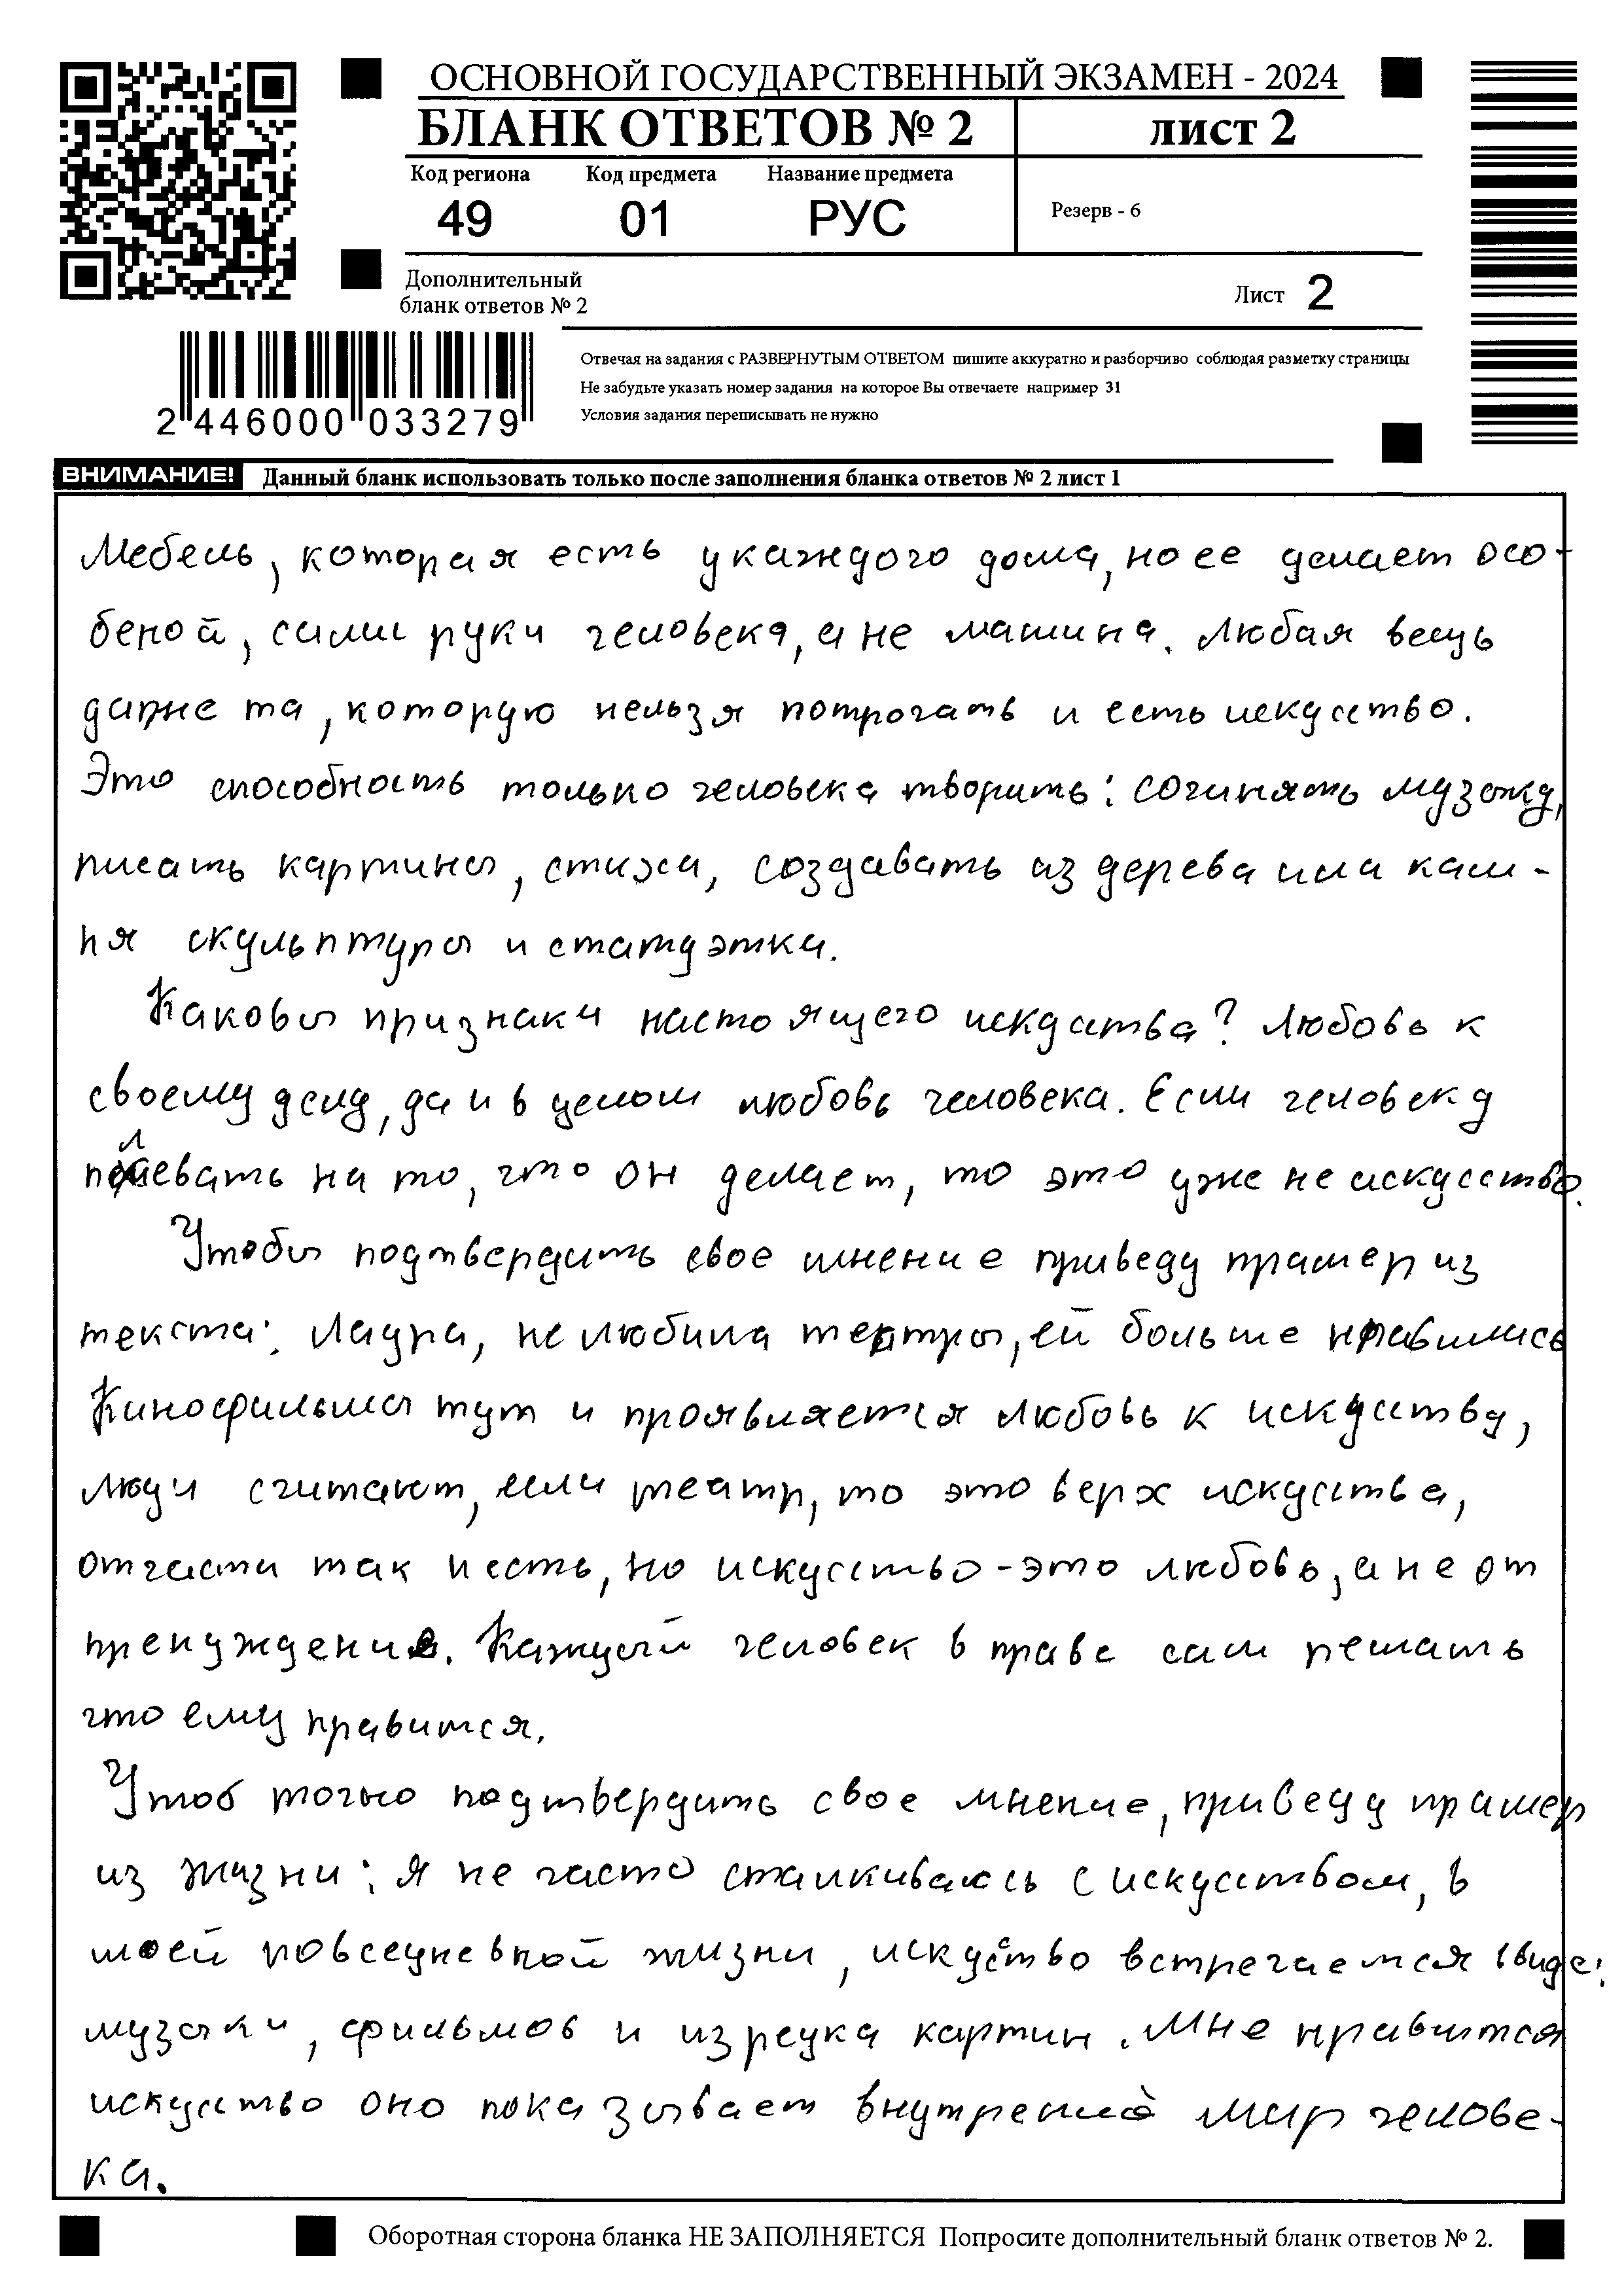 ОСНОВНОЙ ГОСУДАРСТВЕННЫЙ ЭКЗАМЕН - 2024
БЛАНК ОТВЕТОВ № 2 лист 2
Код региона Код предмета Название предмета
49 01 РУС Резерв - 6
Дополнительный
бланк ответов № 2
Лист 2
Отвечая на задания с РАЗВЕРНУТЫМ ОТВЕТОМ пишите аккуратно и разборчиво соблюдая разметку страницы
Не забудьте указать номер задания на которое Вы отвечаете например 31
Условия задания переписывать не нужно
2 446000 033279
ВНИМАНИЕ! Данный бланк использовать только после заполнения бланка ответов № 2 лист 1
Мебель, которая есть у каждого дома, но ее делает осо-
беной, сами руки человека, а не машина. Любая вещь
даже та, которую нельзя потрогать и есть искусство.
Это способность только человека творить: сочинять музыку,
писать картины, стихи, создавать из дерева или кам-
ня скульптуры и статуэтки.
Каковы признаки настоящего искуства? Любовь к
своему делу, да и в целом любовь человека. Если человеку
плевать на то, что он делает, то это уже не искусство.
Чтобы подтвердить свое мнение приведу пример из
текста: Лаура, не любила театры, ей больше нравились
Кинофильмы тут и проявляется любовь к искуству,
люди считают, если театр, то это верх искуства,
отчасти так и есть, но искусство-это любовь, а не от
пренуждение. Каждый человек в праве сам решать
что ему нравится.
Чтоб точно подтвердить свое мнение, приведу пример
из жизни: я не часто сталкиваюсь с искусством, в
моей повседневной жизни, искусство встречается в виде:
музыки, фильмов и изредка картин. Мне нравится
искусство оно показывает внутрений мир челове-
ка.
Оборотная сторона бланка НЕ ЗАПОЛНЯЕТСЯ Попросите дополнительный бланк ответов № 2.